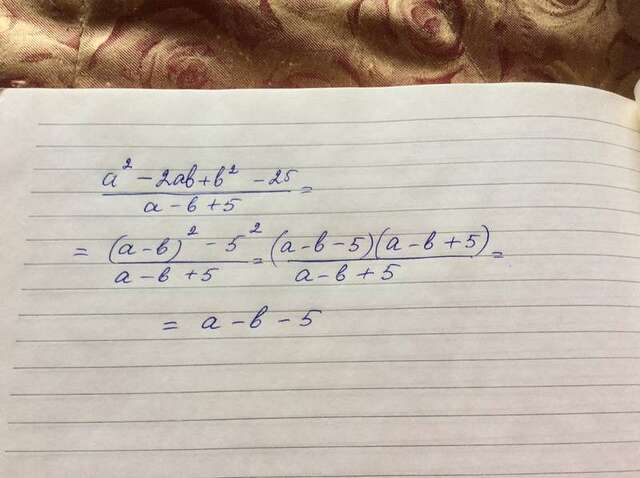 a² - 2ab + b² - 25 / a - b + 5 =
= (a - b)² - 5² / a - b + 5 = (a - b - 5)(a - b + 5) / a - b + 5 =
= a - b - 5